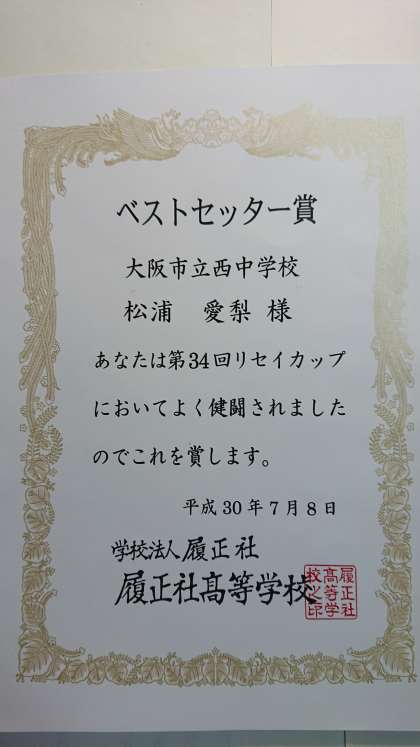 ベストセッター賞
大阪市立西中学校
松浦 愛梨 様
あなたは第34回リセイカップ
においてよく健闘されました
のでこれを賞します。
平成30年7月8日
学校法人履正社
履正社髙等学校
履正社
髙等学
校之印